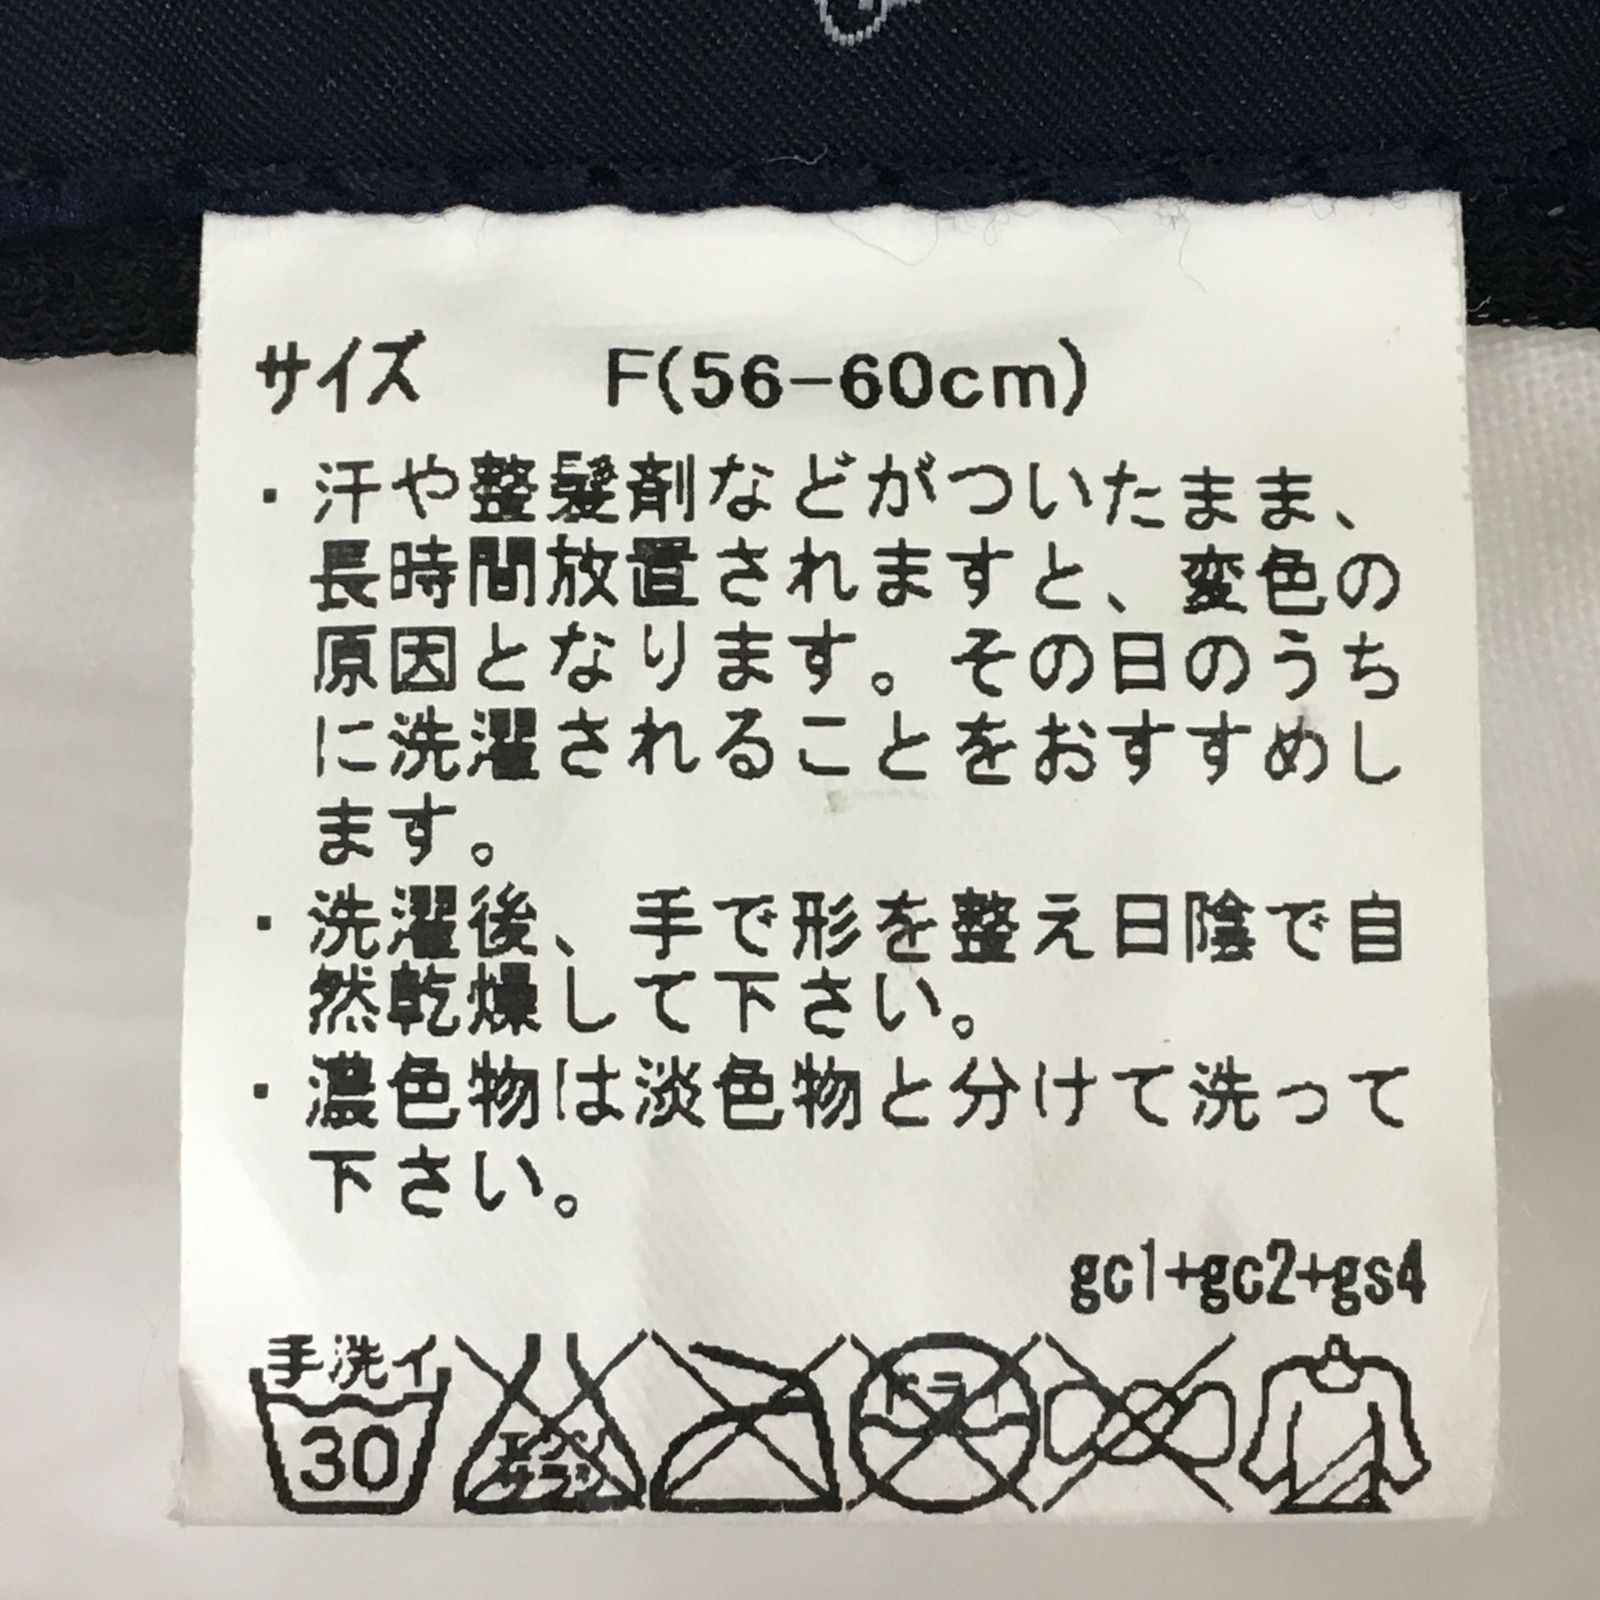 サイズ F(56-60cm)
・汗や整髪剤などがついたまま、
長時間放置されますと、変色の
原因となります。その日のうち
に洗濯されることをおすすめし
ます。
・洗濯後、手で形を整え日陰で自
然乾燥して下さい。
・濃色物は淡色物と分けて洗って
下さい。
gc1+gc2+gs4
手洗イ
30
エンソ
サラシ
ドライ